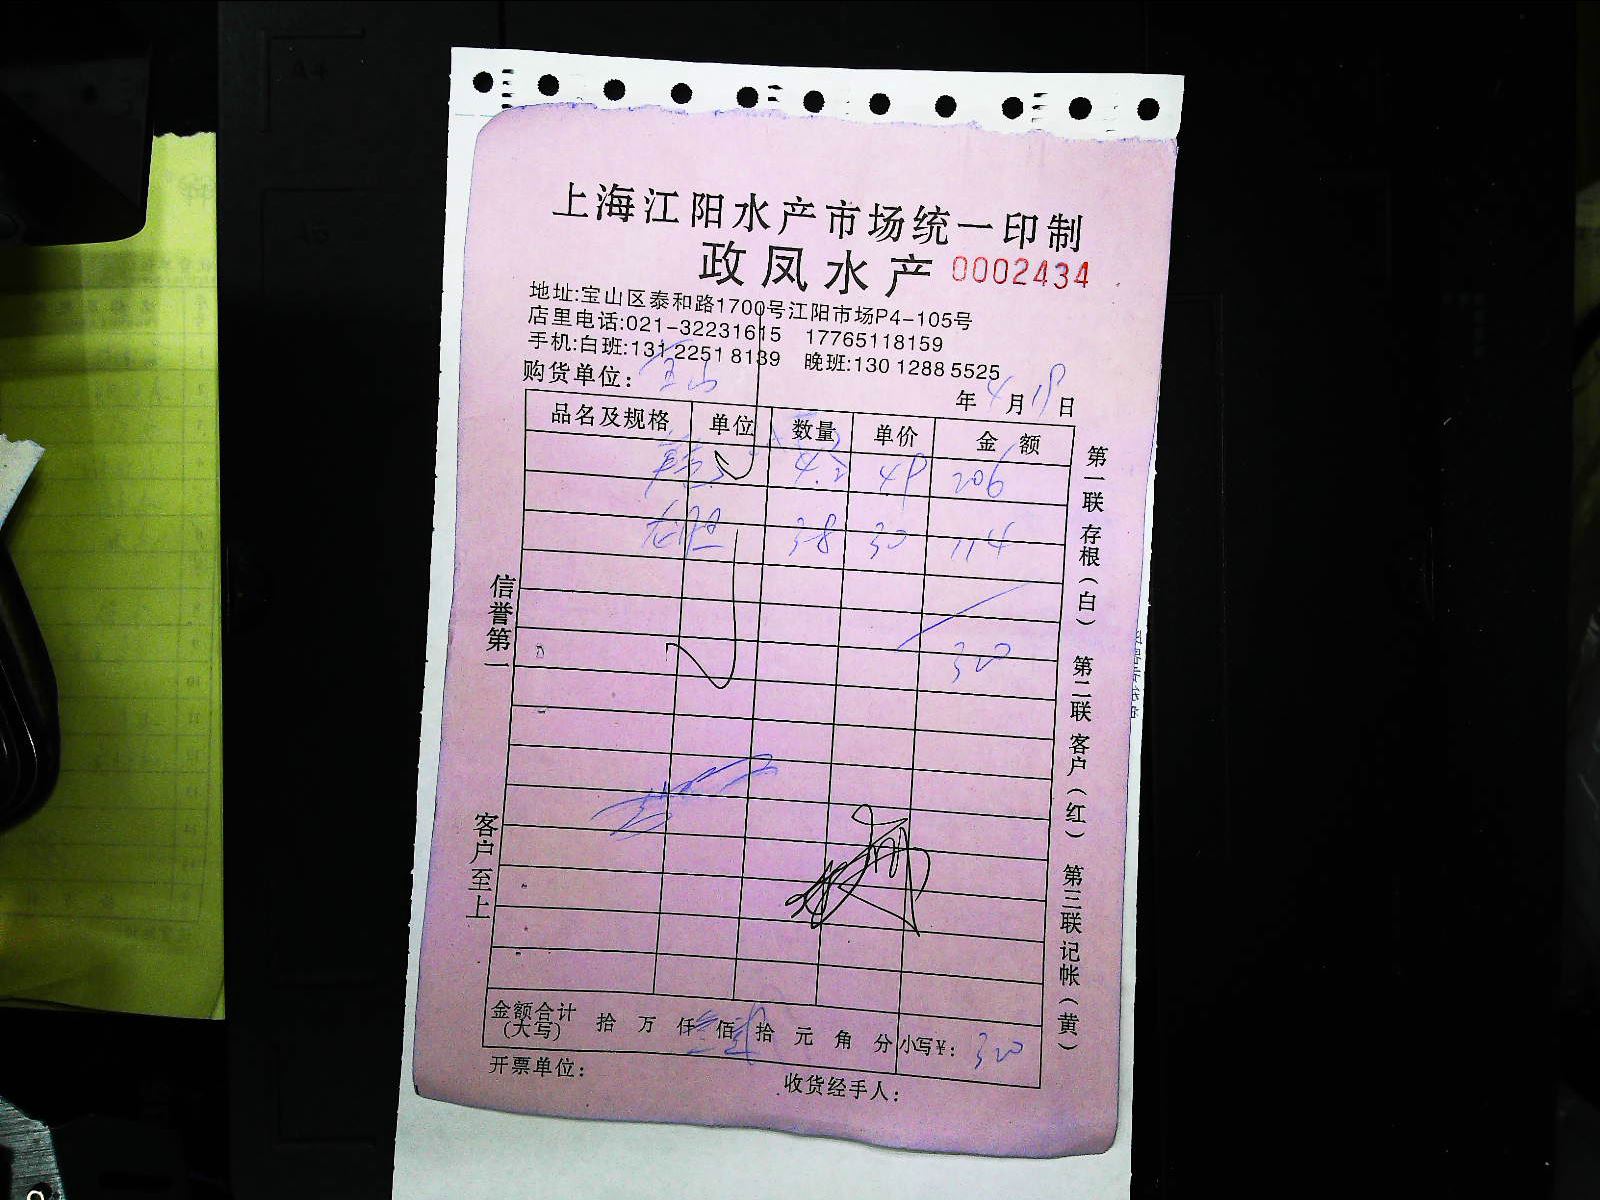 上海江阳水产市场统一印制
政凤水产 0002434
地址:宝山区泰和路1700号江阳市场P4-105号
店里电话:021-32231615 17765118159
手机:白班:131 2251 8139 晚班:130 1288 5525
购货单位: 宝山
年 4 月 19 日
品名及规格 单位 数量 单价 金额
4.2 49 206
38 30 114
320
金额合计(大写) 拾 万 仟 佰 拾 元 角 分 小写¥: 320
开票单位: 收货经手人:
信誉第一
客户至上
第一联 存根(白) 第二联 客户(红) 第三联 记帐(黄)